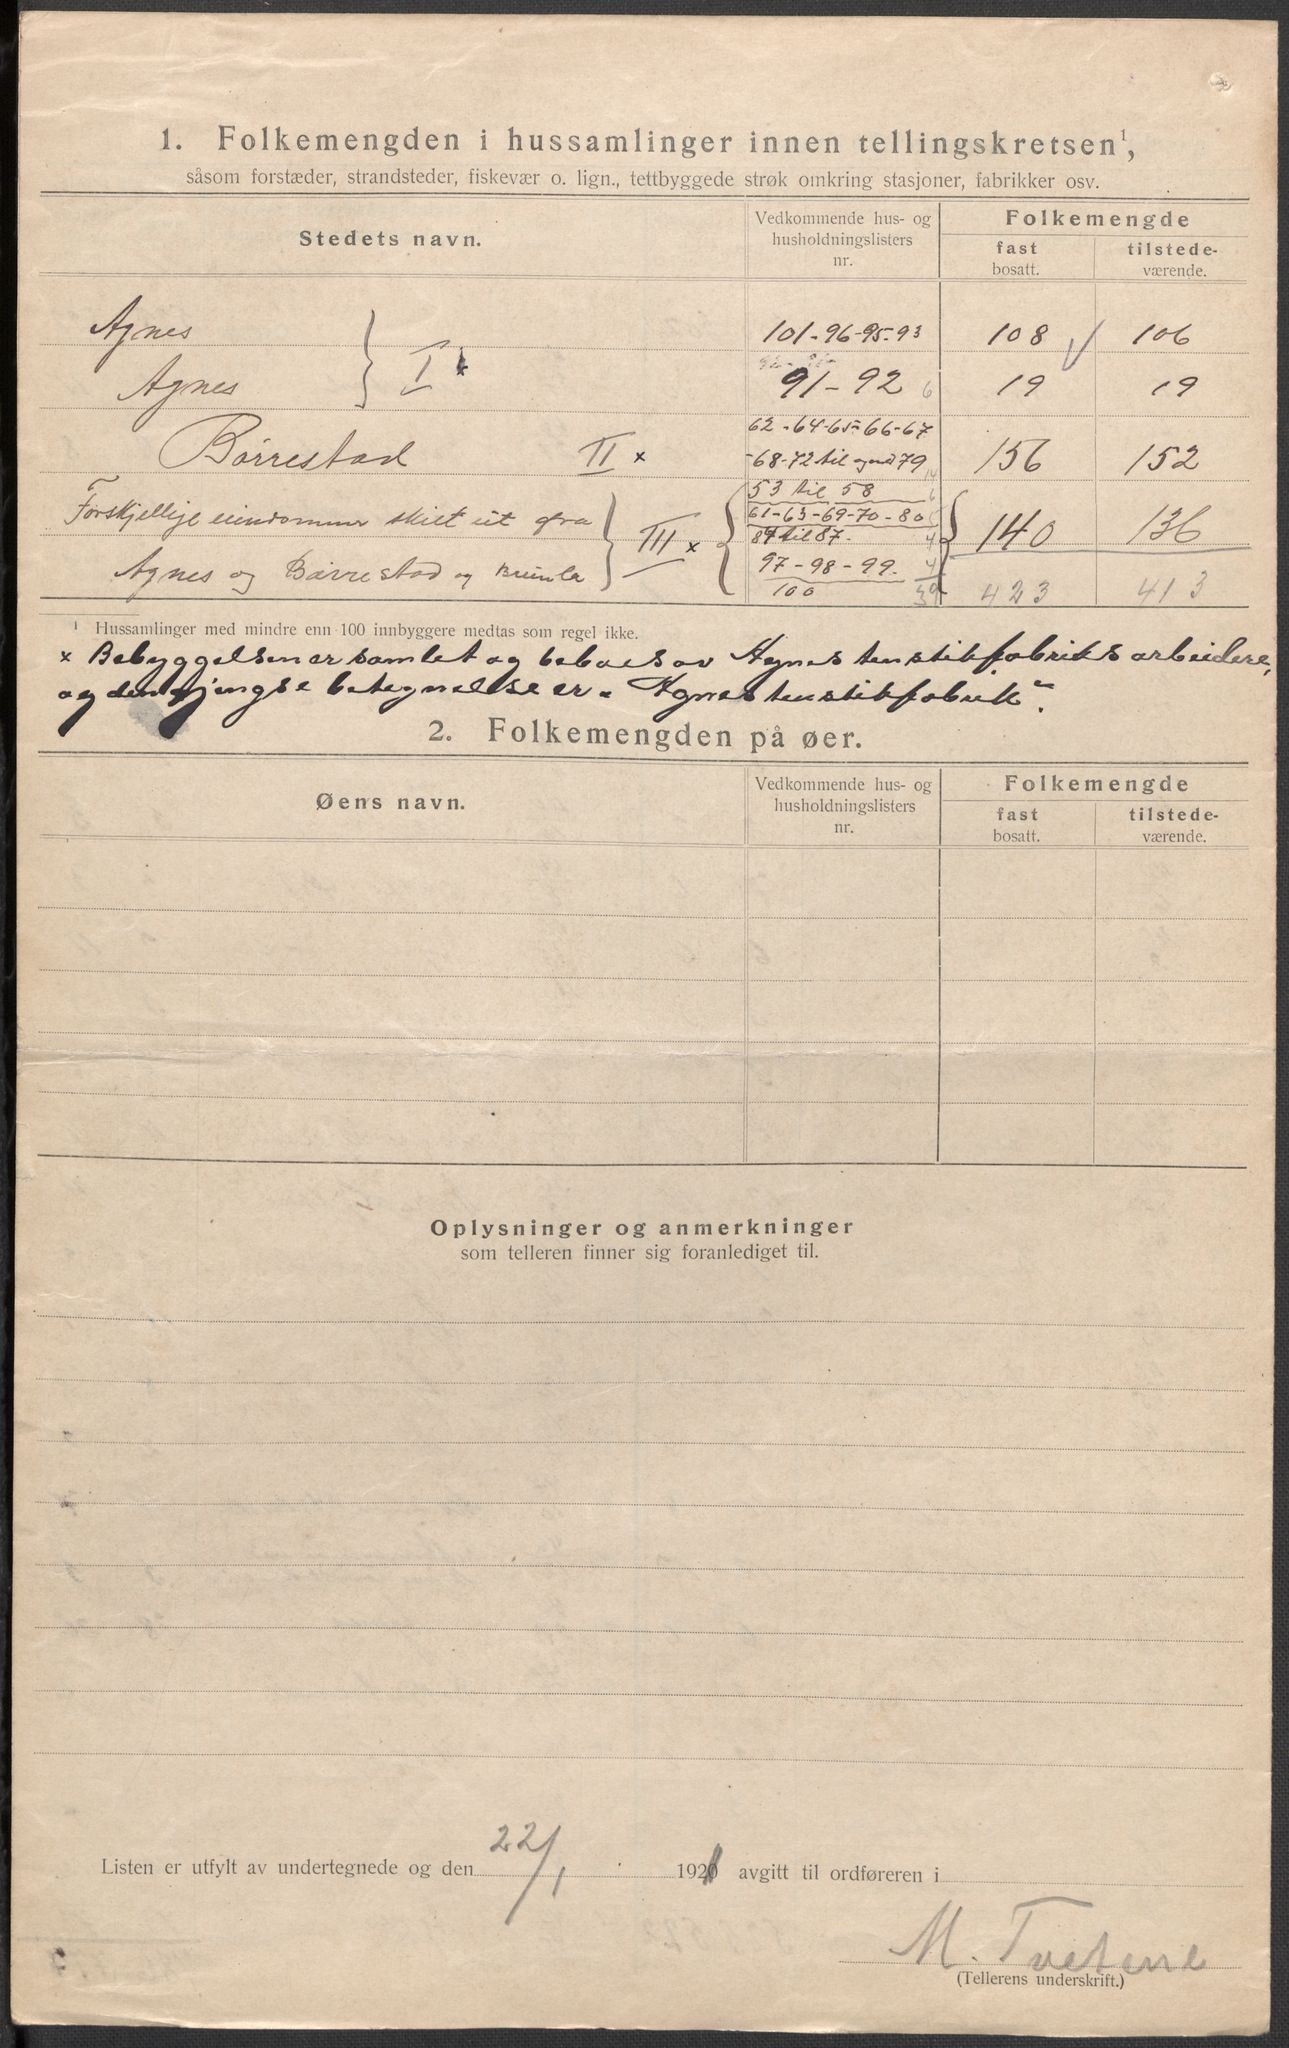 1. Folkemengden i hussamlinger innen tellingskretsen¹,
såsom forstæder, strandsteder, fiskevær o. lign., tettbyggede strøk omkring stasjoner, fabrikker osv.
Stedets navn.
Vedkommende hus- og husholdningslisters nr.
Folkemengde
fast bosatt.
tilstede-værende.
Agnes 101-96-95-93 108 106
Agnes I x 91-92 6 19 19
Børrestad II x 62-64-65-66-67
-68-72 til og med 79 14 156 152
53 til 58 6
Forskjellige eiendommer skilt ut fra III x 61-63-69-70-80 140 136
84 til 87. 4
Agnes og Børrestad og Brunla 97-98-99. 4
100 39 423 413
¹ Hussamlinger med mindre enn 100 innbyggere medtas som regel ikke.
x Bebyggelsen er samlet og beboes av Agnes tenstikfabriks arbeidere,
og den gjengse betegnelse er „Agnes tenstikfabrik".
2. Folkemengden på øer.
Øens navn.
Vedkommende hus- og husholdningslisters nr.
Folkemengde
fast bosatt.
tilstede-værende.
Oplysninger og anmerkninger
som telleren finner sig foranlediget til.
Listen er utfylt av undertegnede og den 22/1 1921 avgitt til ordføreren i
M. Tvetene
(Tellerens underskrift.)